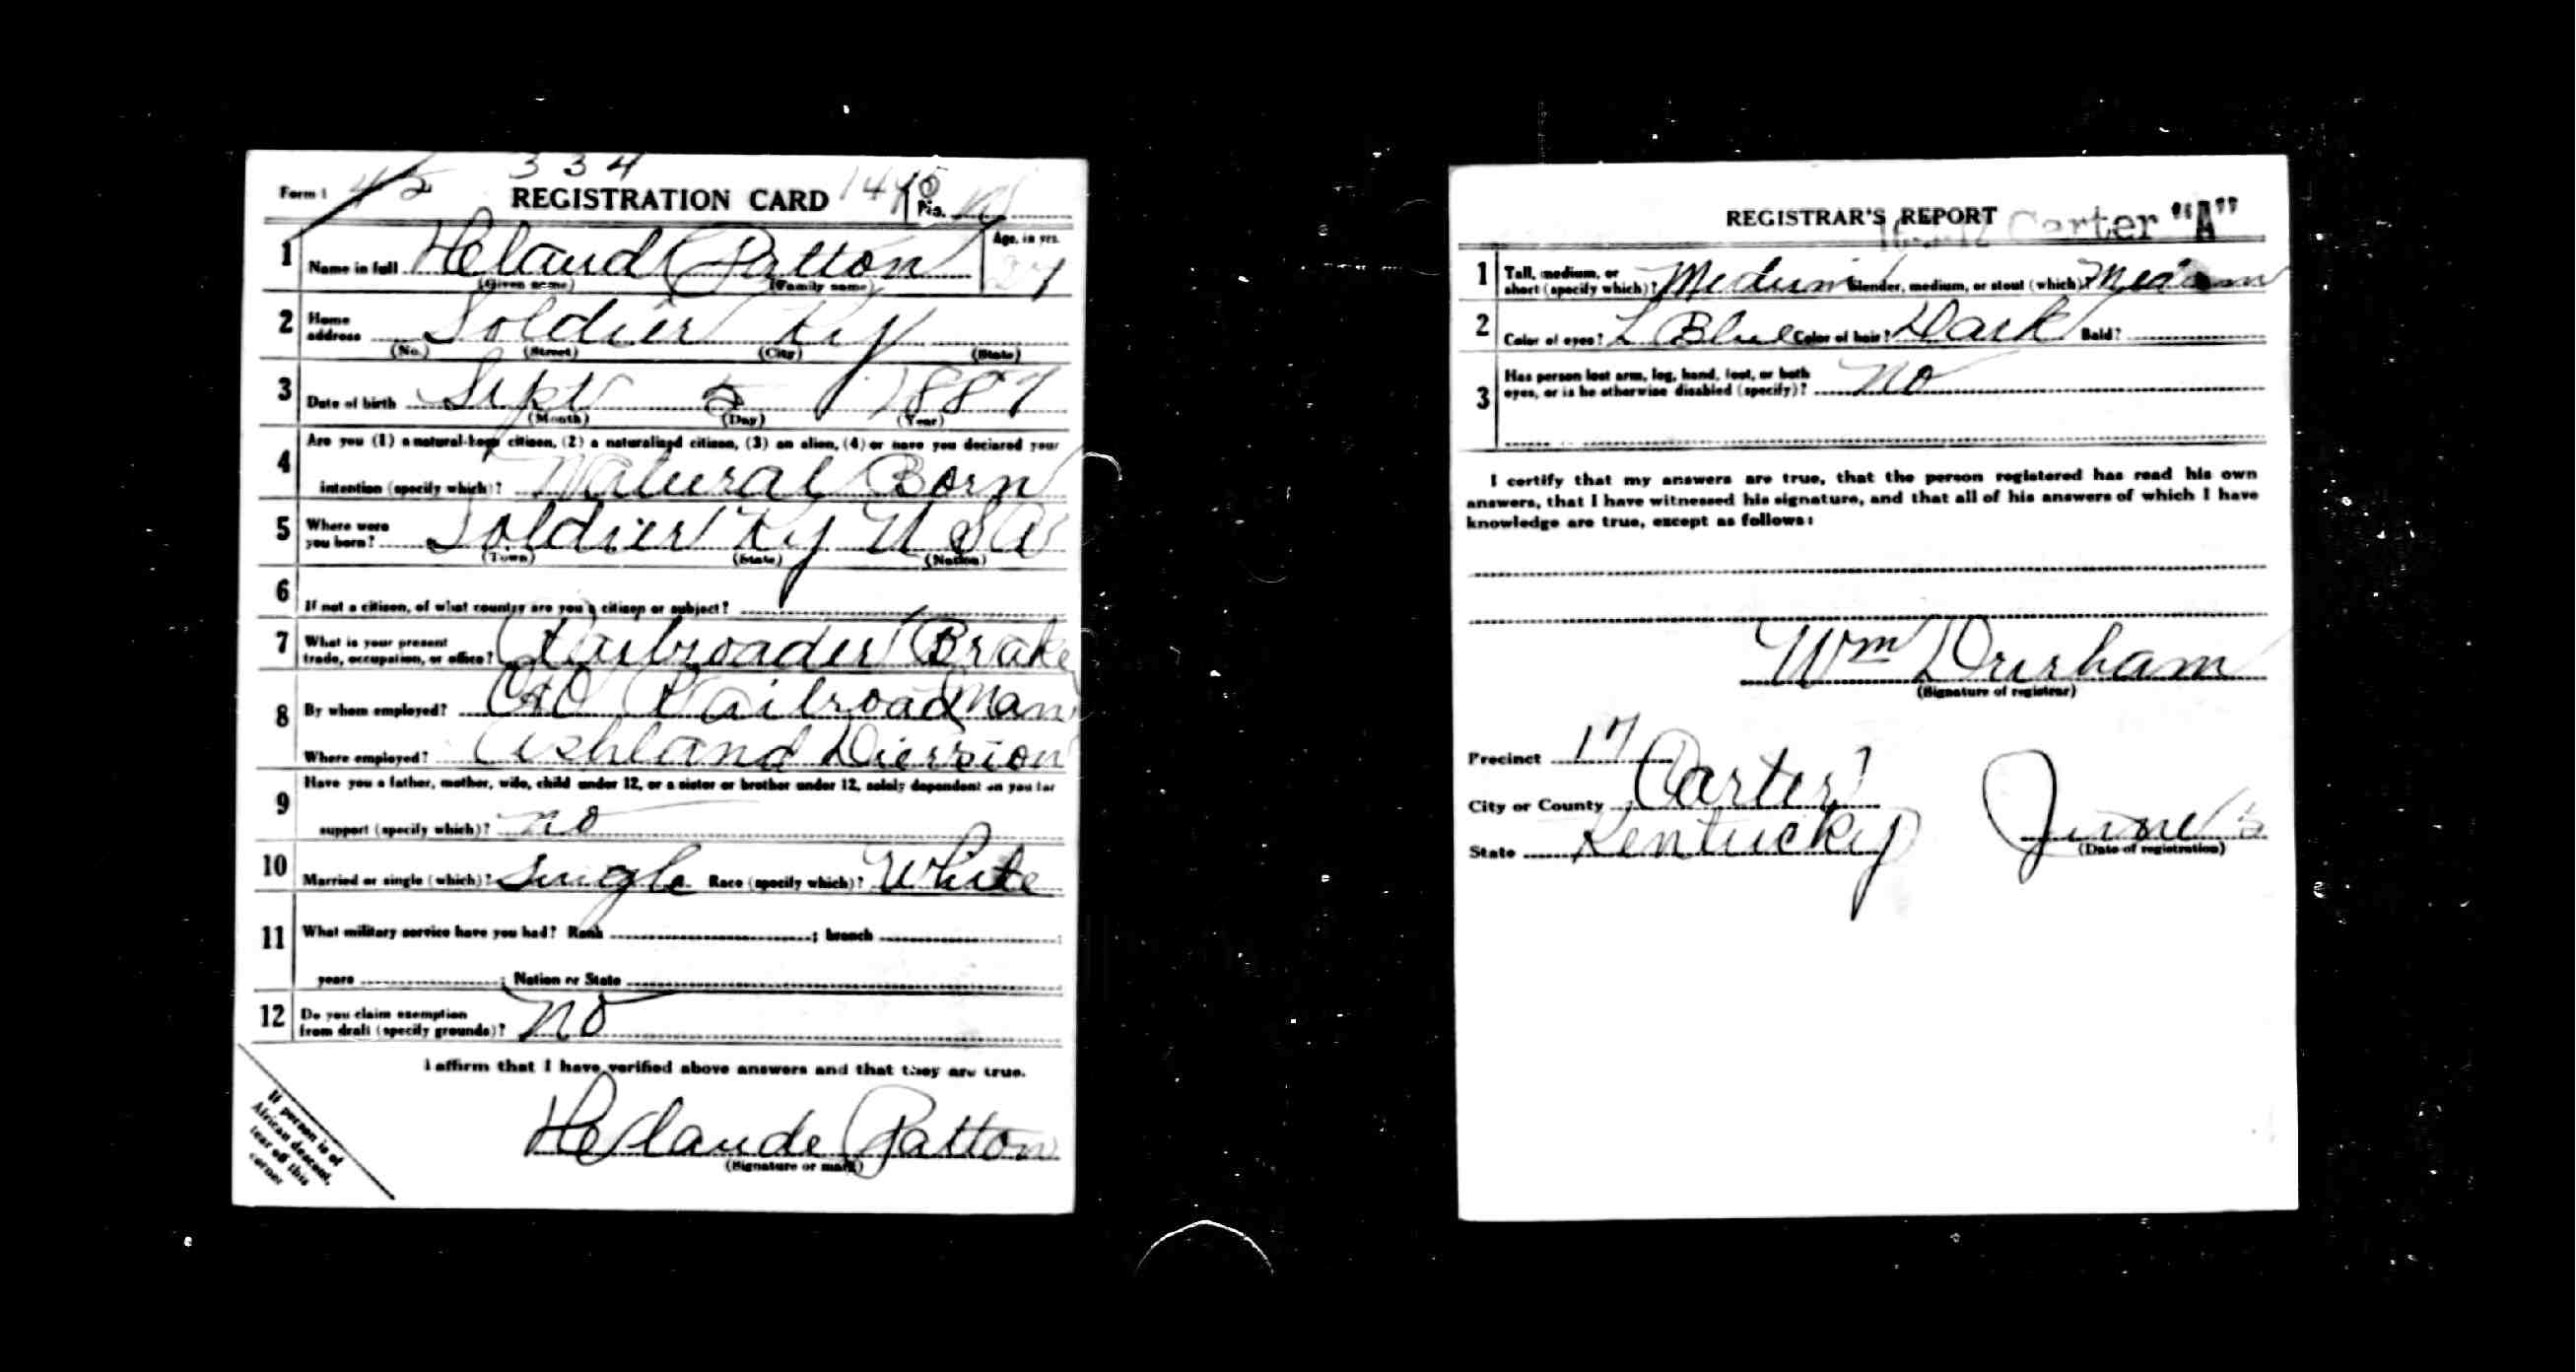 334
Form 1 45 REGISTRATION CARD No.
1 Name in full Heland Patton Age, in yrs.
(Given name) (Family name)
2 Home address Soldier Ky
(No.) (Street) (City) (State)
3 Date of birth Sept 5 1887
(Month) (Day) (Year)
4 Are you (1) a natural-born citizen, (2) a naturalized citizen, (3) an alien, (4) or have you declared your
intention (specify which)? Natural Born
5 Where were you born? Soldier Ky U S A
(Town) (State) (Nation)
6 If not a citizen, of what country are you a citizen or subject?
7 What is your present trade, occupation, or office? Railroader Brake
8 By whom employed? C&O Railroad man
Where employed? Ashland Division
9 Have you a father, mother, wife, child under 12, or a sister or brother under 12, solely dependent on you for
support (specify which)? no
10 Married or single (which)? Single Race (specify which)? White
11 What military service have you had? Rank ; branch
years ; Nation or State
12 Do you claim exemption from draft (specify grounds)? No
I affirm that I have verified above answers and that they are true.
Helaude Patton
(Signature or mark)
If person is of
African descent,
tear off this
corner
REGISTRAR'S REPORT Carter "A"
1 Tall, medium, or short (specify which)? Medium Slender, medium, or stout (which)? Medium
2 Color of eyes? L Blue Color of hair? Dark Bald?
3 Has person lost arm, leg, hand, foot, or both
eyes, or is he otherwise disabled (specify)? no
I certify that my answers are true, that the person registered has read his own
answers, that I have witnessed his signature, and that all of his answers of which I have
knowledge are true, except as follows:
Wm Durham
(Signature of registrar)
Precinct 17
City or County Carter
State Kentucky June 5
(Date of registration)